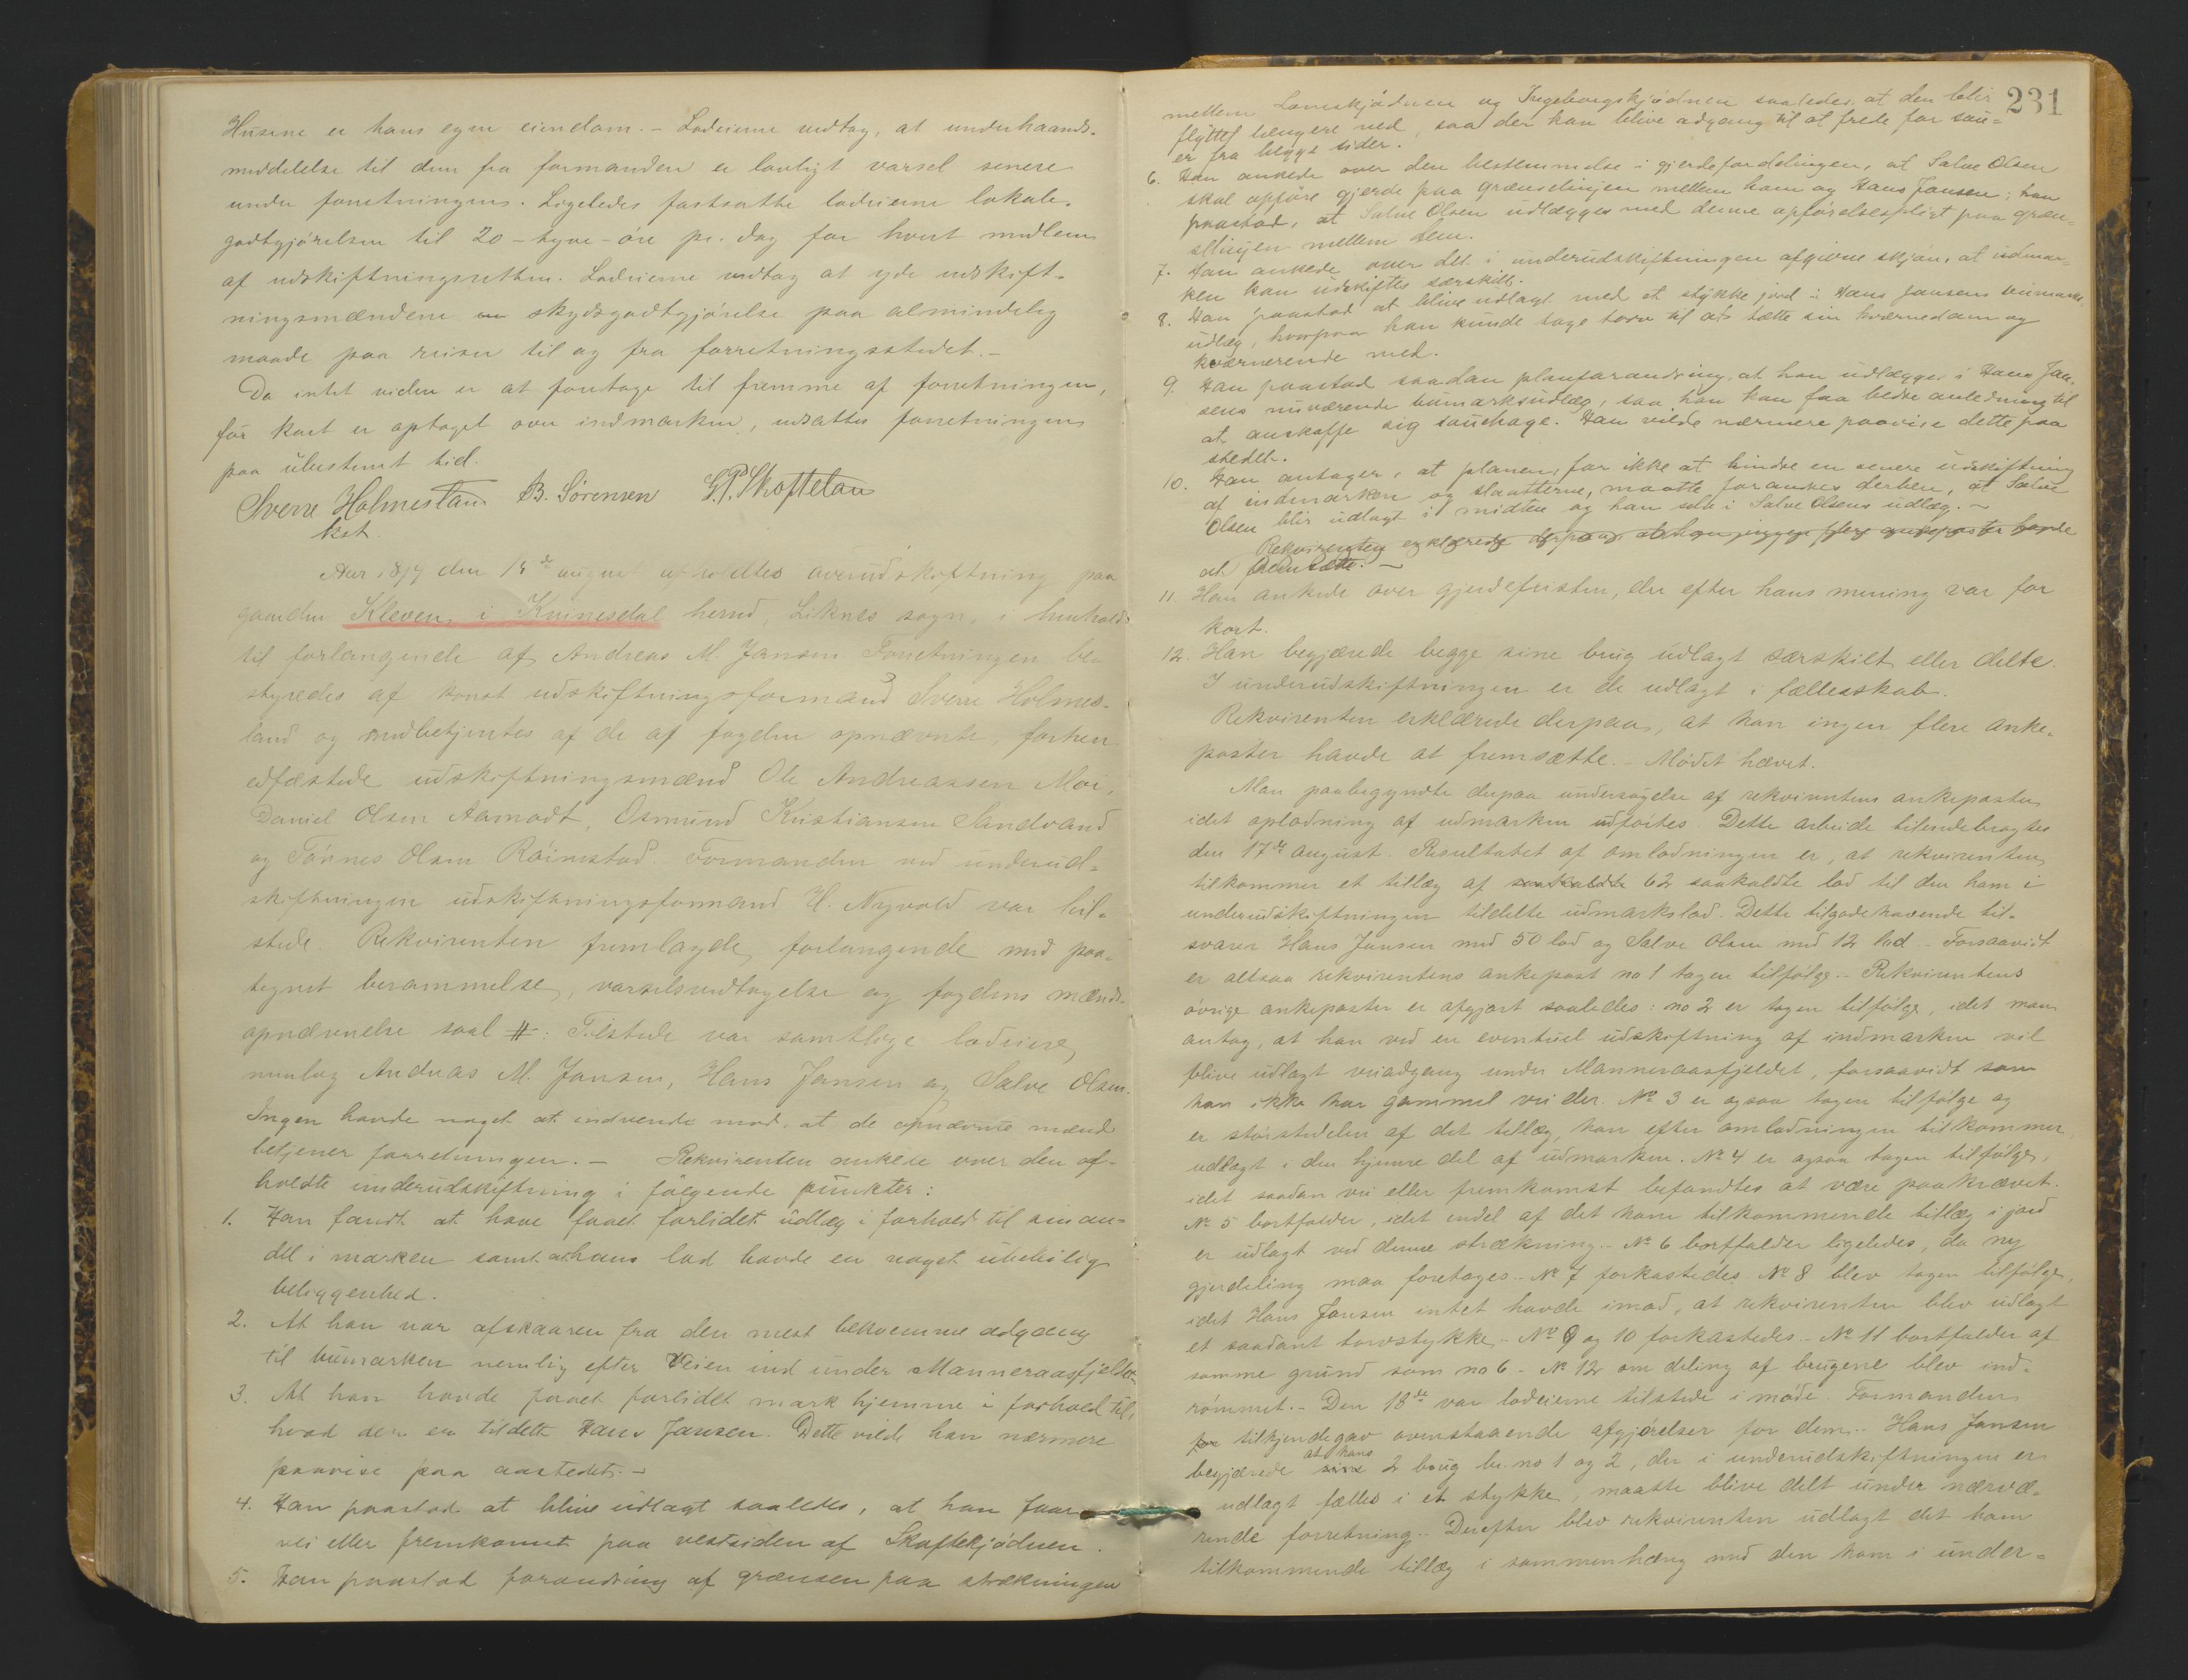 Husene er hans egen eiendom. – Lodeierne vedtog, at underhaands-
meddelelse til dem fra formanden er lovligt varsel senere
under forretningen. Ligeledes fastsatte lodeierne lokale-
godtgjörelsen til 20 – tyve – öre pr. dag for hvert medlem
af udskiftningsretten. Lodeierne vedtog at yde udskift-
ningsmændene skydsgodtgjörelse paa almindelig
maade paa reiser til og fra forretningsstedet. –
Da intet videre er at foretage til fremme af forretningen,
för kart er optaget over indmarken, udsattes forretningen
paa übestemt tid.
Sverre Holmesland B. Sörensen G. P. Skoftelan
kst.
Aar 1899 den 14de august afholdtes overüdskiftning paa
gaarden Kleven i Kvinesdal herred, Liknes sogn, i henhold
til forlangende af Andreas M. Jansen. Forretningen be-
styredes af konst. udskiftningsformand Sverre Holmes-
land og medbetjentes af de af fogden opnævnte, forhen
edfæstede üdskiftningsmænd Ole Andreassen Moi,
Daniel Olsen Aamodt, Osmünd Kristiansen Sandvand
og Tönnes Olsen Röimstad. Formanden ved ünderüd-
skiftningen üdskiftningsformand H. Nyvold var til-
stede. Rekvirenten fremlagde forlangende med paa-
tegnet berammelse, varselsvedtagelse og fogdens mænds-
opnævnelse saal #: Tilstede var samtlige lodeiere
nemlig Andreas M. Jansen, Hans Jansen og Salve Olsen.
Ingen havde noget at indvende mod, at de opnævnte mænd
betjener forretningen. – Rekvirenten ankede over den af-
holdte underüdskiftning i fölgende pünkter:
1. Han fandt at have faaet forlidet üdlæg i forhold til sin an-
del i marken samt at hans lod havde en noget übeleilig
beliggenhed.
2. At han var afskaaren fra den mest bekvemme adgang
til bümarken nemlig efter Veien ind ünder Manneraasfjeldet.
3. At han havde faaet forlidet mark hjemme i forhold til,
hvad der er tildelt Hans Jansen. Dette vilde han nærmere
paavise paa aastedet. –
4. Han paastod at blive üdlagt saaledes, at han faar
vei eller fremkomst paa vestsiden af Skaftekjödnen.
5. Han paastod forandring af grænsen paa strækningen
231
mellem Lomskjödnen og Ingeborgskjödnen saaledes, at den blir
flyttet længere ned, saa der kan blive adgang til at frede for sau-
er fra begge sider.
6. Han ankede over den bestemmelse i gjerdefordelingen, at Salve Olsen
skal opföre gjerde paa grænselinjen mellem ham og Hans Jansen; han
paastod, at Salve Olsen üdlægges med denne opförelsespligt paa græn-
selinjen mellem dem.
7. Han ankede over det i underüdskiftningen afgivne skjön, at üdmar-
ken kan üdskiftes særskilt.
8. Han paastod at blive üdlagt med et stykke jord i Hans Jansens bümarks-
üdlæg, hvorpaa han künde tage torv til at tætte sin kværnedam og
kværnerende med.
9. Han paastod saadan planforandring, at han üdlægges i Hans Jan-
sens nüværende bümarksüdlæg, saa han kan faa bedre anledning til
at anskaffe sig saühage. Han vilde nærmere paavise dette paa
stedet.
10. Han antager, at planen, for ikke at hindre en senere üdskiftning
af indmarken og slaatterne, maatte forandres derhen, at Salve
Olsen blir üdlagt i midten og han selv i Salve Olsens üdlæg. –
Rekvirenten erklærede derpaa, at han ingen flere ankeposter havde
at fremsætte. –
11. Han ankede over gjerdefristen, der efter hans mening var for
kort.
12. Han begjærede begge sine brüg üdlagt særskilt eller delte.
I ünderüdskiftningen er de üdlagt i fællesskab.
Rekvirenten erklærede derpaa, at han ingen flere anke-
poster havde at fremsætte. – Mödet hævet.
Man paabegyndte derpaa ündersögelse af rekvirentens ankeposter,
idet oplodning af üdmarken üdförtes. Dette arbeide tilendebragtes
den 17de aügüst. Resultatet af omlodningen er, at rekvirenten
tilkommer et tillæg af saakaldte 62 saakaldte lod til den ham i
underüdskiftningen tildelte üdmarkslod. Dette tilgodehavende til-
svarer Hans Jansen med 50 lod og Salve Olsen med 12 lod. – Forsaavidt
er altsaa rekvirentens ankepost no 1 tagen tilfölge. – Rekvirentens
övrige ankeposter er afgjort saaledes: no 2 er tagen tilfölge, idet man
antog, at han ved en eventuel üdskiftning af indmarken vil
blive üdlagt veiadgang under Manneraasfjeldet, forsaavidt som
han ikke har gammel vei der. No 3 er ogsaa tagen tilfölge og
er störstedelen af det tillæg, han efter omlodningen tilkommer,
udlagt i den hjemre del af üdmarken. No 4 er ogsaa tagen tilfölge,
idet saadan vei eller fremkomst befandtes at være paakrævet.
No 5 bortfalder, idet endel af det ham tilkommende tillæg i jord
er üdlagt ved denne strækning. – No 6 bortfalder ligeledes, da ny
gjerdeling maa foretages. – No 7 forkastedes. No 8 blev tagen tilfölge,
idet Hans Jansen intet havde imod, at rekvirenten blev üdlagt
et saadant torvstykke. – No 9 og 10 forkastedes. – No 11 bortfalder af
samme gründ som no 6. – No 12 om deling af brugene blev ind-
römmet. – Den 18de var lodeierne tilstede i möde. Formanden
for tilkjendegav ovenstaaende afgjörelser for dem. – Hans Jansen
begjærede sine at hans 2 brüg br. no 1 og 2, der i underüdskiftningen er
udlagt fælles i et stykke, maatte blive delt ünder nærvæ-
rende forretning. – Derefter blev rekvirenten üdlagt det ham
tilkommende tillæg i sammenhæng med den ham i ünder-